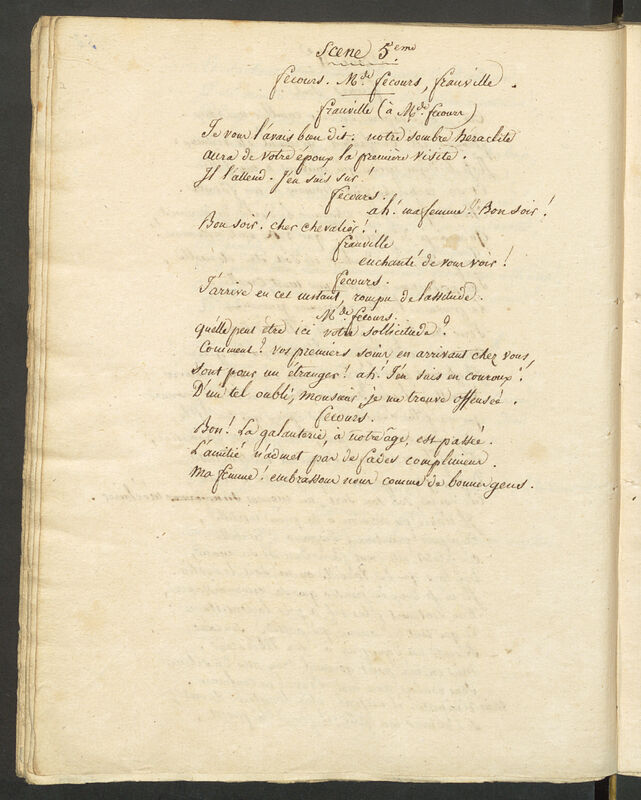 Scene 5.eme
fecours. M.de fecours, franville.
franville (à M.de fecours)
Je vous l'avais bien dit: notre sombre heraclite
aura de votre époux la première visite.
Il l'attend. J'en suis sur!
fecours.
ah! ma femme! Bon soir!
Bon soir! cher chevalier!
franville
enchanté de vous voir!
fecours.
J'arrive en cet instant, rompu de lassitude.
M.de fecours.
quelle peut être ici votre sollicitude?
Comment? vos premiers soins en arrivant chez vous,
sont pour un étranger! ah! J'en suis en couroux!
D'un tel oubli, monsieur, je me trouve offensée.
fecours.
Bon! La galanterie, à notre âge, est passée.
L'amitié n'admet pas de fades complimens.
Ma femme! embrassons nous comme de bonnes gens.